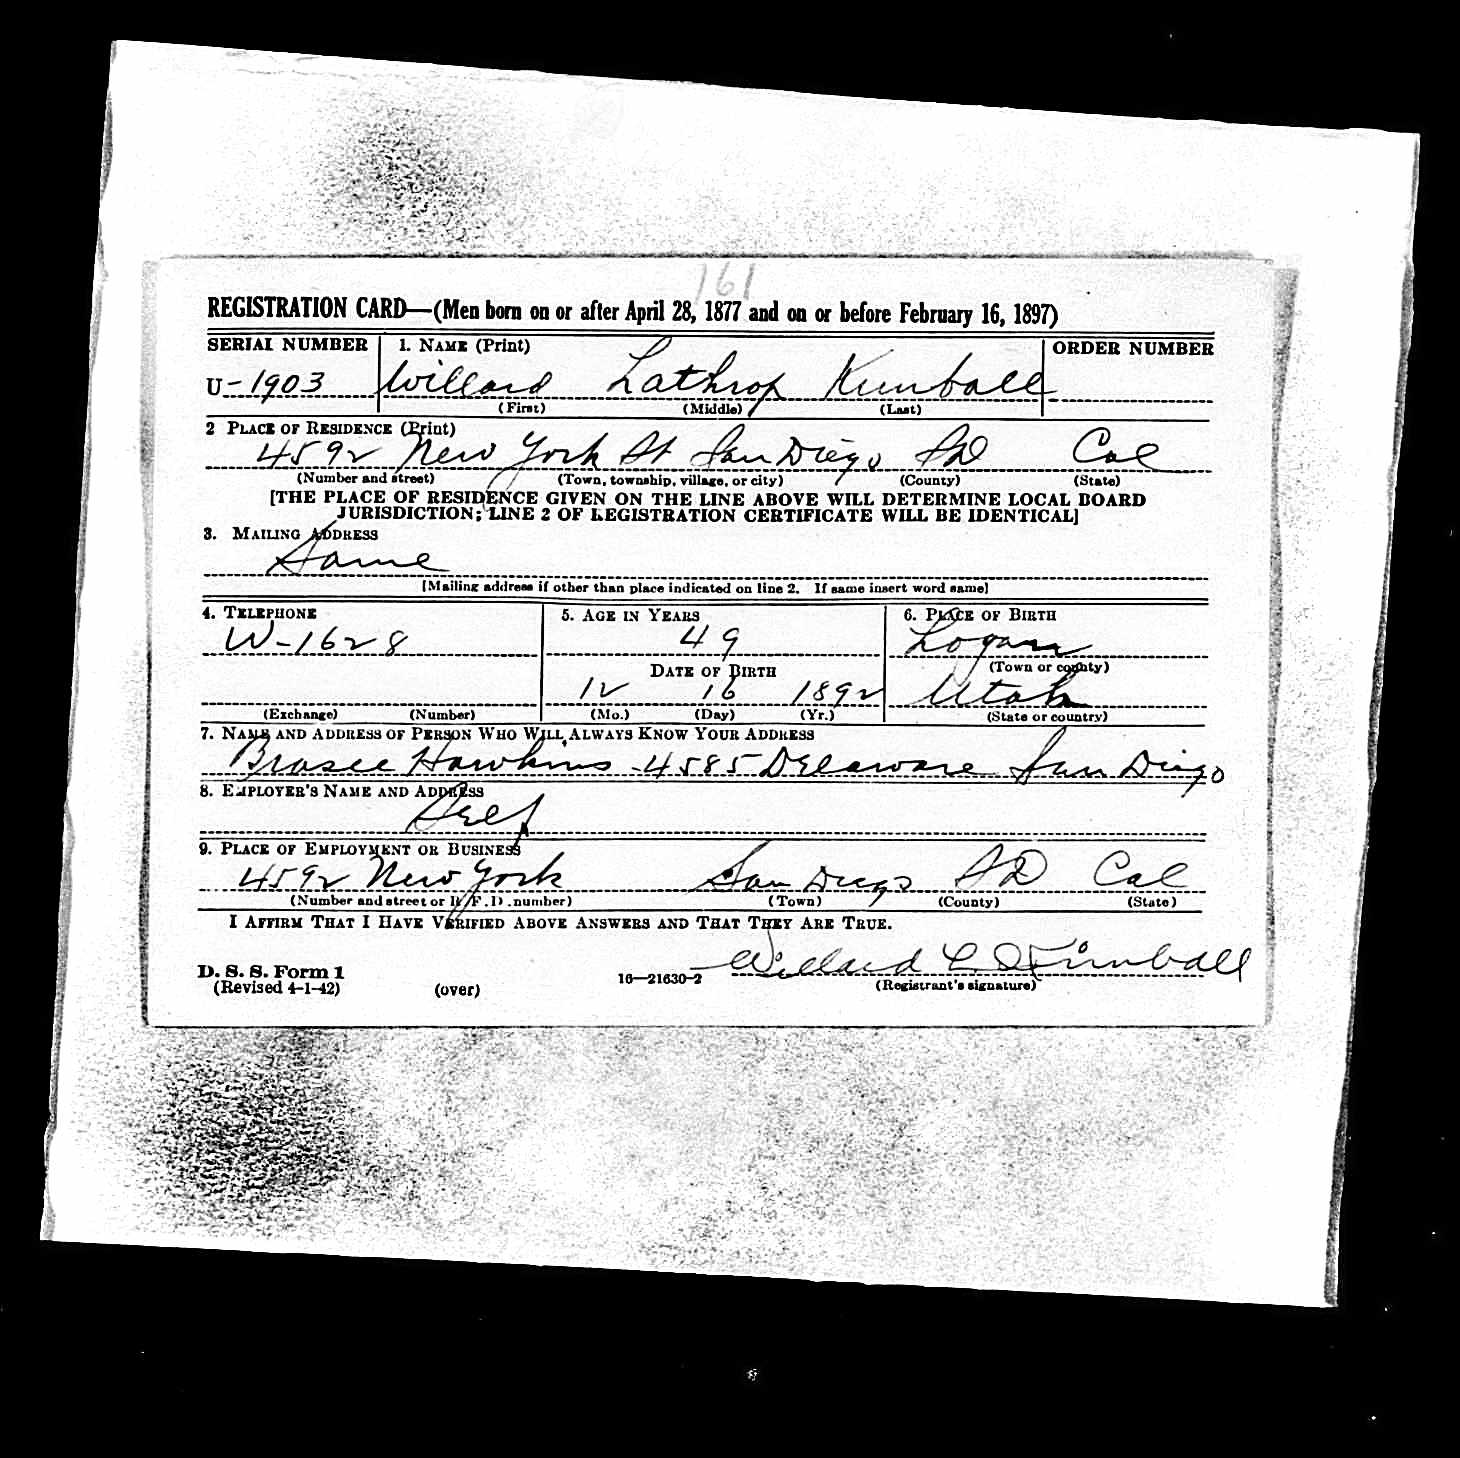 161
REGISTRATION CARD—(Men born on or after April 28, 1877 and on or before February 16, 1897)
SERIAL NUMBER 1. NAME (Print) ORDER NUMBER
U-1903 Willard Lathrop Kimball
(First) (Middle) (Last)
2 PLACE OF RESIDENCE (Print)
4592 New York St San Diego SD Cal
(Number and street) (Town, township, village, or city) (County) (State)
[THE PLACE OF RESIDENCE GIVEN ON THE LINE ABOVE WILL DETERMINE LOCAL BOARD
JURISDICTION; LINE 2 OF REGISTRATION CERTIFICATE WILL BE IDENTICAL]
3. MAILING ADDRESS
Same
[Mailing address if other than place indicated on line 2. If same insert word same]
4. TELEPHONE 5. AGE IN YEARS 6. PLACE OF BIRTH
W-1628 49 Logan
DATE OF BIRTH (Town or county)
12 16 1892 Utah
(Exchange) (Number) (Mo.) (Day) (Yr.) (State or country)
7. NAME AND ADDRESS OF PERSON WHO WILL ALWAYS KNOW YOUR ADDRESS
Hawkins - 4585 Delaware San Diego
8. EMPLOYER'S NAME AND ADDRESS
Self
9. PLACE OF EMPLOYMENT OR BUSINESS
4592 New York San Diego SD Cal
(Number and street or R. F. D. number) (Town) (County) (State)
I AFFIRM THAT I HAVE VERIFIED ABOVE ANSWERS AND THAT THEY ARE TRUE.
Willard L. Kimball
D. S. S. Form 1
(Revised 4-1-42) (over) 16—21630-2 (Registrant's signature)